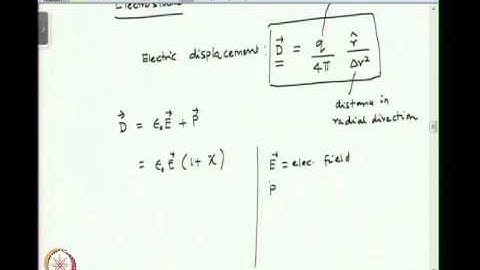 Electrostatic
Electric displacement: D⃗ = q/4π r̂/Δr²
distance in
radial direction
D⃗ = ϵ₀E⃗ + P⃗
= ϵ₀E⃗ (1 + χ)
E⃗ = elec. field
P